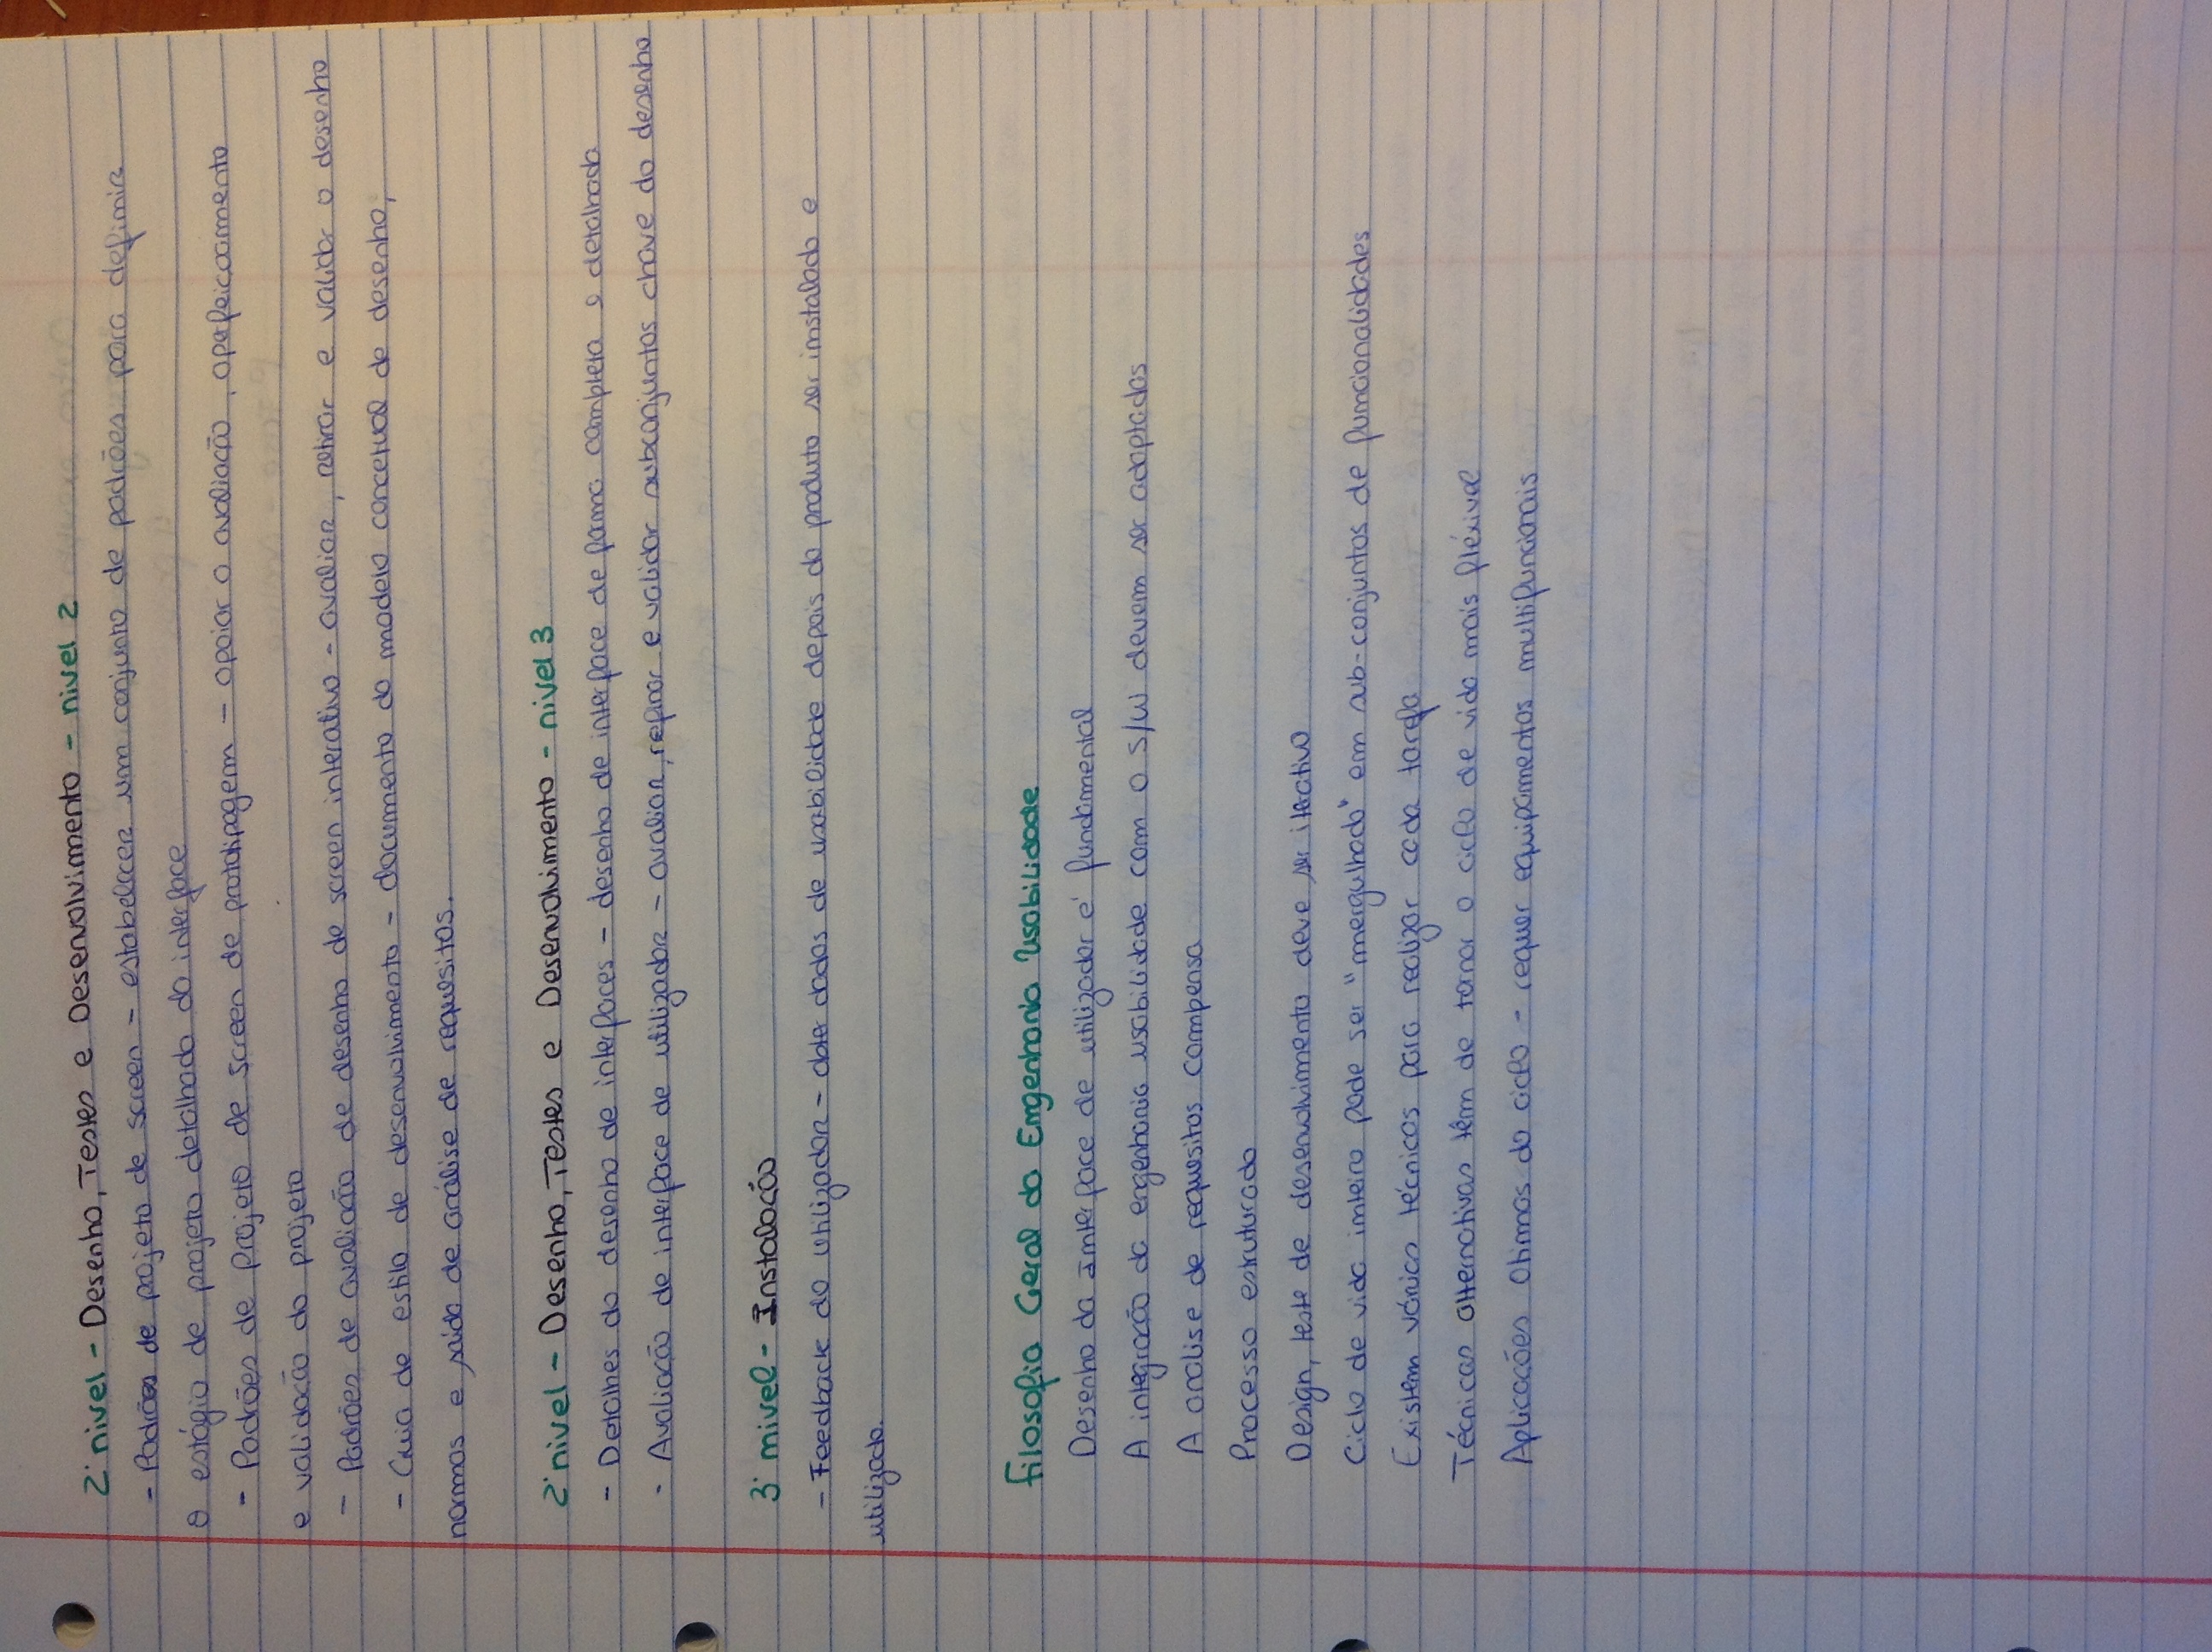 2º nivel - Desenho, Testes e Desenvolvimento - nivel 2
- Padrões de projeto de screen - estabelecer um conjunto de padrões para definir
o estágio de projeto detalhado do interface
- Padrões de Projeto de screen de prototipagem - apoiar a avaliação, aperfeiçoamento
e validação do projeto
- Padrões de avaliação de desenho de screen interativo - avaliar, retirar e validar o desenho
- Guia de estilo de desenvolvimento - documento do modelo concetual de desenho,
normas e saída de análise de requesitos.
2º nivel - Desenho, Testes e Desenvolvimento - nivel 3
- Detalhes do desenho de interfaces - desenho de interface de forma completa e detalhada
- Avaliação de interface de utilizador - avaliar, refinar e validar subconjuntos chave do desenho
3º nivel - Instalação
- Feedback do utilizador - obter dados de usabilidade depois do produto ser instalado e
utilizado.
Filosofia Geral da Engenharia Usabilidade
Desenho da Interface de utilizador é fundamental
A integração da engenharia usabilidade com o S/W devem ser adaptados
A analise de requesitos compensa
Processo estruturado
Design, teste de desenvolvimento deve ser iterativo
Ciclo de vida inteiro pode ser "mergulhado" em sub-conjuntos de funcionalidades
Existem várias técnicas para realizar cada tarefa
Técnicas alternativas têm de tornar o ciclo de vida mais fléxivel
Aplicações Otimas do ciclo - requer equipamentos multifuncionais